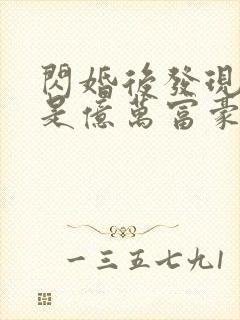 閃婚後發現
是億萬富豪
一三五七九1